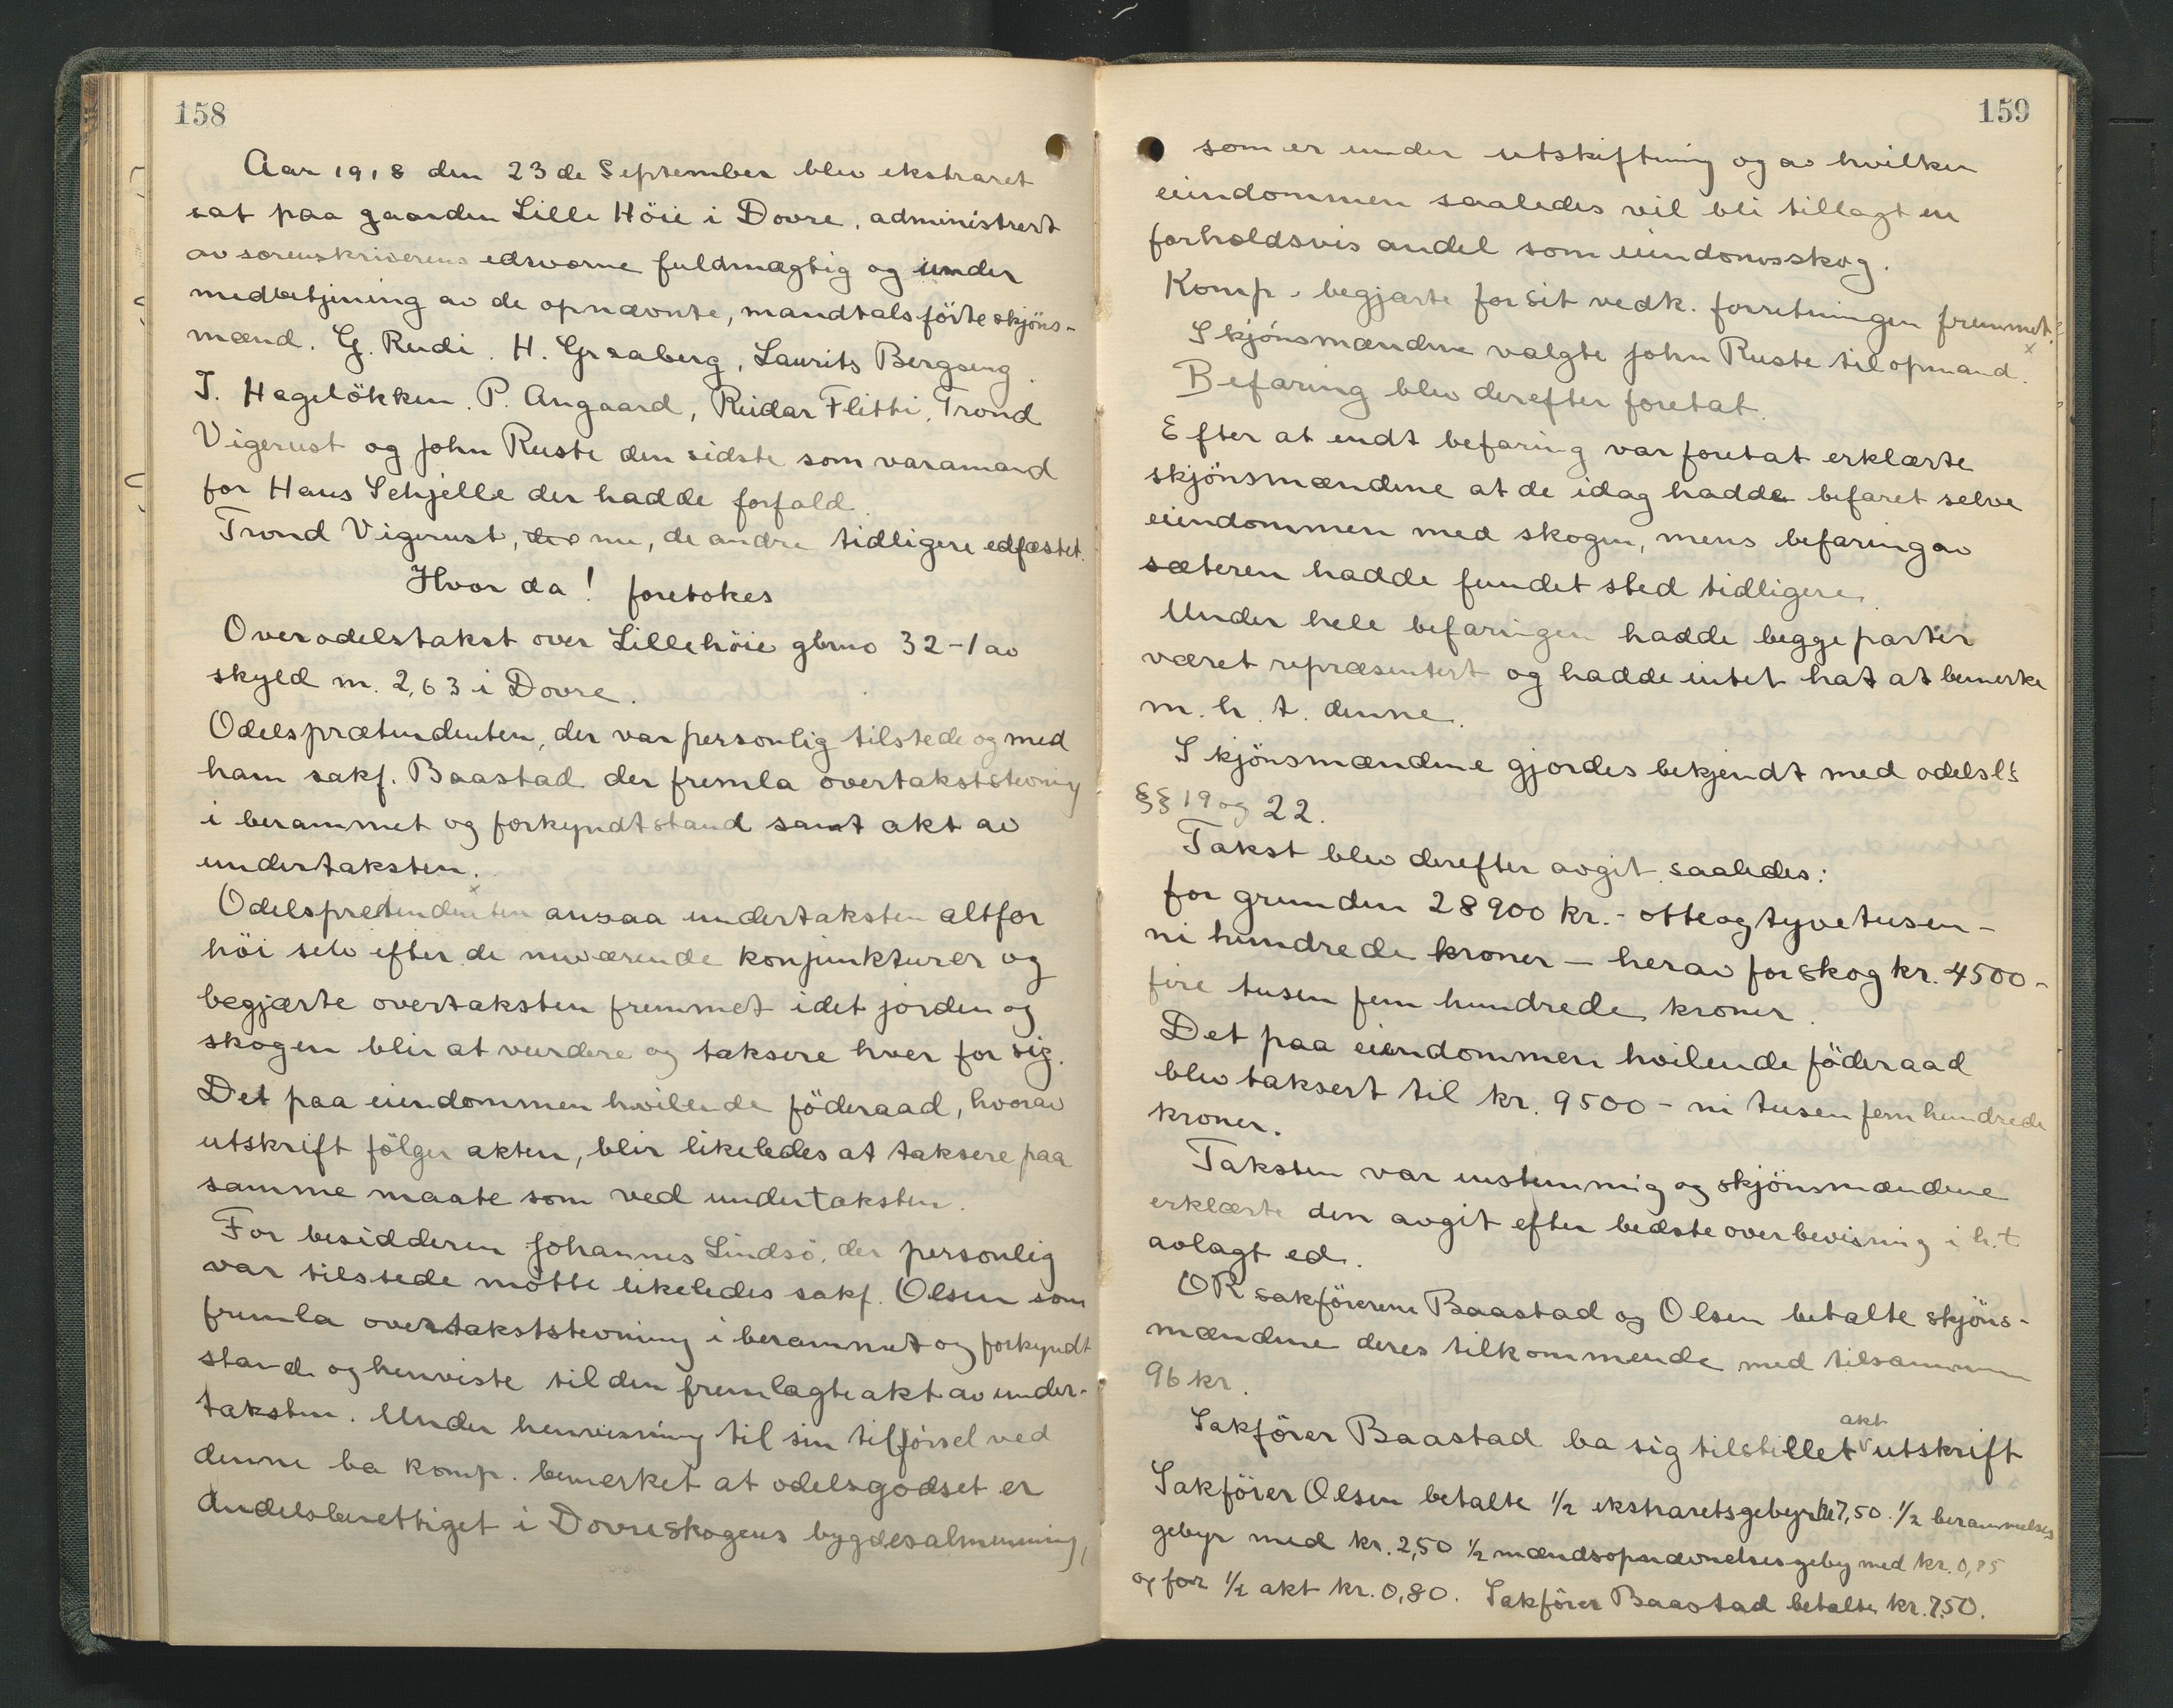 158
Aar 1918 den 23de September blev ekstraret
sat paa gaarden Lille Höie i Dovre, administrert
av sorenskriverens edsvorne fuldmægtig og under
medbetjening av de opnævnte, mandtalsförte skjöns-
mænd. G. Rudi. H. Graaberg, Laurits Bergseng
J. Hagelökken. P. Angaard, Reidar Flitti, Trond
Vigerust og John Ruste den sidste som varamand
for Hans Schjelle der hadde forfald.
Trond Vigerust, nu, de andre tidligere edfæstet.
Hvor da! foretokes
Overodelstakst over Lillehöie gbrno 32-1 av
skyld m. 2,63 i Dovre.
Odelsprætendenten, der var personlig tilstede og med
ham sakf. Baastad der fremla overtakststevning
i berammet og forkyndt stand samt akt av
undertaksten.
Odelspretendenten ansaa undertaksten altfor
höi selv efter de nuværende konjunkturer og
begjærte overtaksten fremmet idet jorden og
skogen blir at vurdere og taksere hver for sig.
Det paa eiendommen hvilende föderaad, hvorav
utskrift fölger akten, blir likeledes at taksere paa
samme maate som ved undertaksten.
For besidderen Johannes Lindsö, der personlig
var tilstede mötte likeledes sakf. Olsen som
fremla overtakststevning i berammet og forkyndt
stand og henviste til den fremlagte akt av under-
taksten. Under henvisning til sin tilförsel ved
denne ba komp. bemerket at odelsgodset er
andelsberettiget i Dovreskogens bygdesalmenning,
159
som er under utskiftning og av hvilken
eiendommen saaledes vil bli tillagt en
forholdsvis andel som eiendomsskog.
Komp. begjærte for sit vedk. forretningen fremmet.
Skjönsmændene valgte John Ruste til opmand.
Befaring blev derefter foretat.
Efter at endt befaring var foretat erklærte
skjönsmændene at de idag hadde befaret selve
eiendommen med skogen, mens befaring av
sæteren hadde fundet sted tidligere.
Under hele befaringen hadde begge parter
været repræsentert og hadde intet hat at bemerke
m. h. t. denne.
Skjönsmændene gjordes bekjendt med odelsl's
§§ 19 og 22.
Takst blev derefter avgit saaledes:
for grunden 28900 kr. - otteogtyvetusen -
ni hundrede kroner - herav for skog kr. 4500 -
fire tusen fem hundrede kroner.
Det paa eiendommen hvilende föderaad
blev taksert til kr. 9500 - ni tusen fem hundrede
kroner.
Taksten var enstemmig og skjönsmændene
erklærte den avgit efter bedste overbevisning i h.t
avlagt ed.
OR sakförerne Baastad og Olsen betalte skjöns-
mændene deres tilkommende med tilsammen
96 kr.
akt
Sakförer Baastad ba sig tilstillet utskrift
Sakförer Olsen betalte 1/2 ekstraretsgebyr kr 7,50. 1/2 berammelses
gebyr med kr. 2,50 1/2 mændsopnævnelsesgeby med kr. 0,85
og for 1/2 akt kr. 0,80. Sakförer Baastad betalte kr. 7,50.